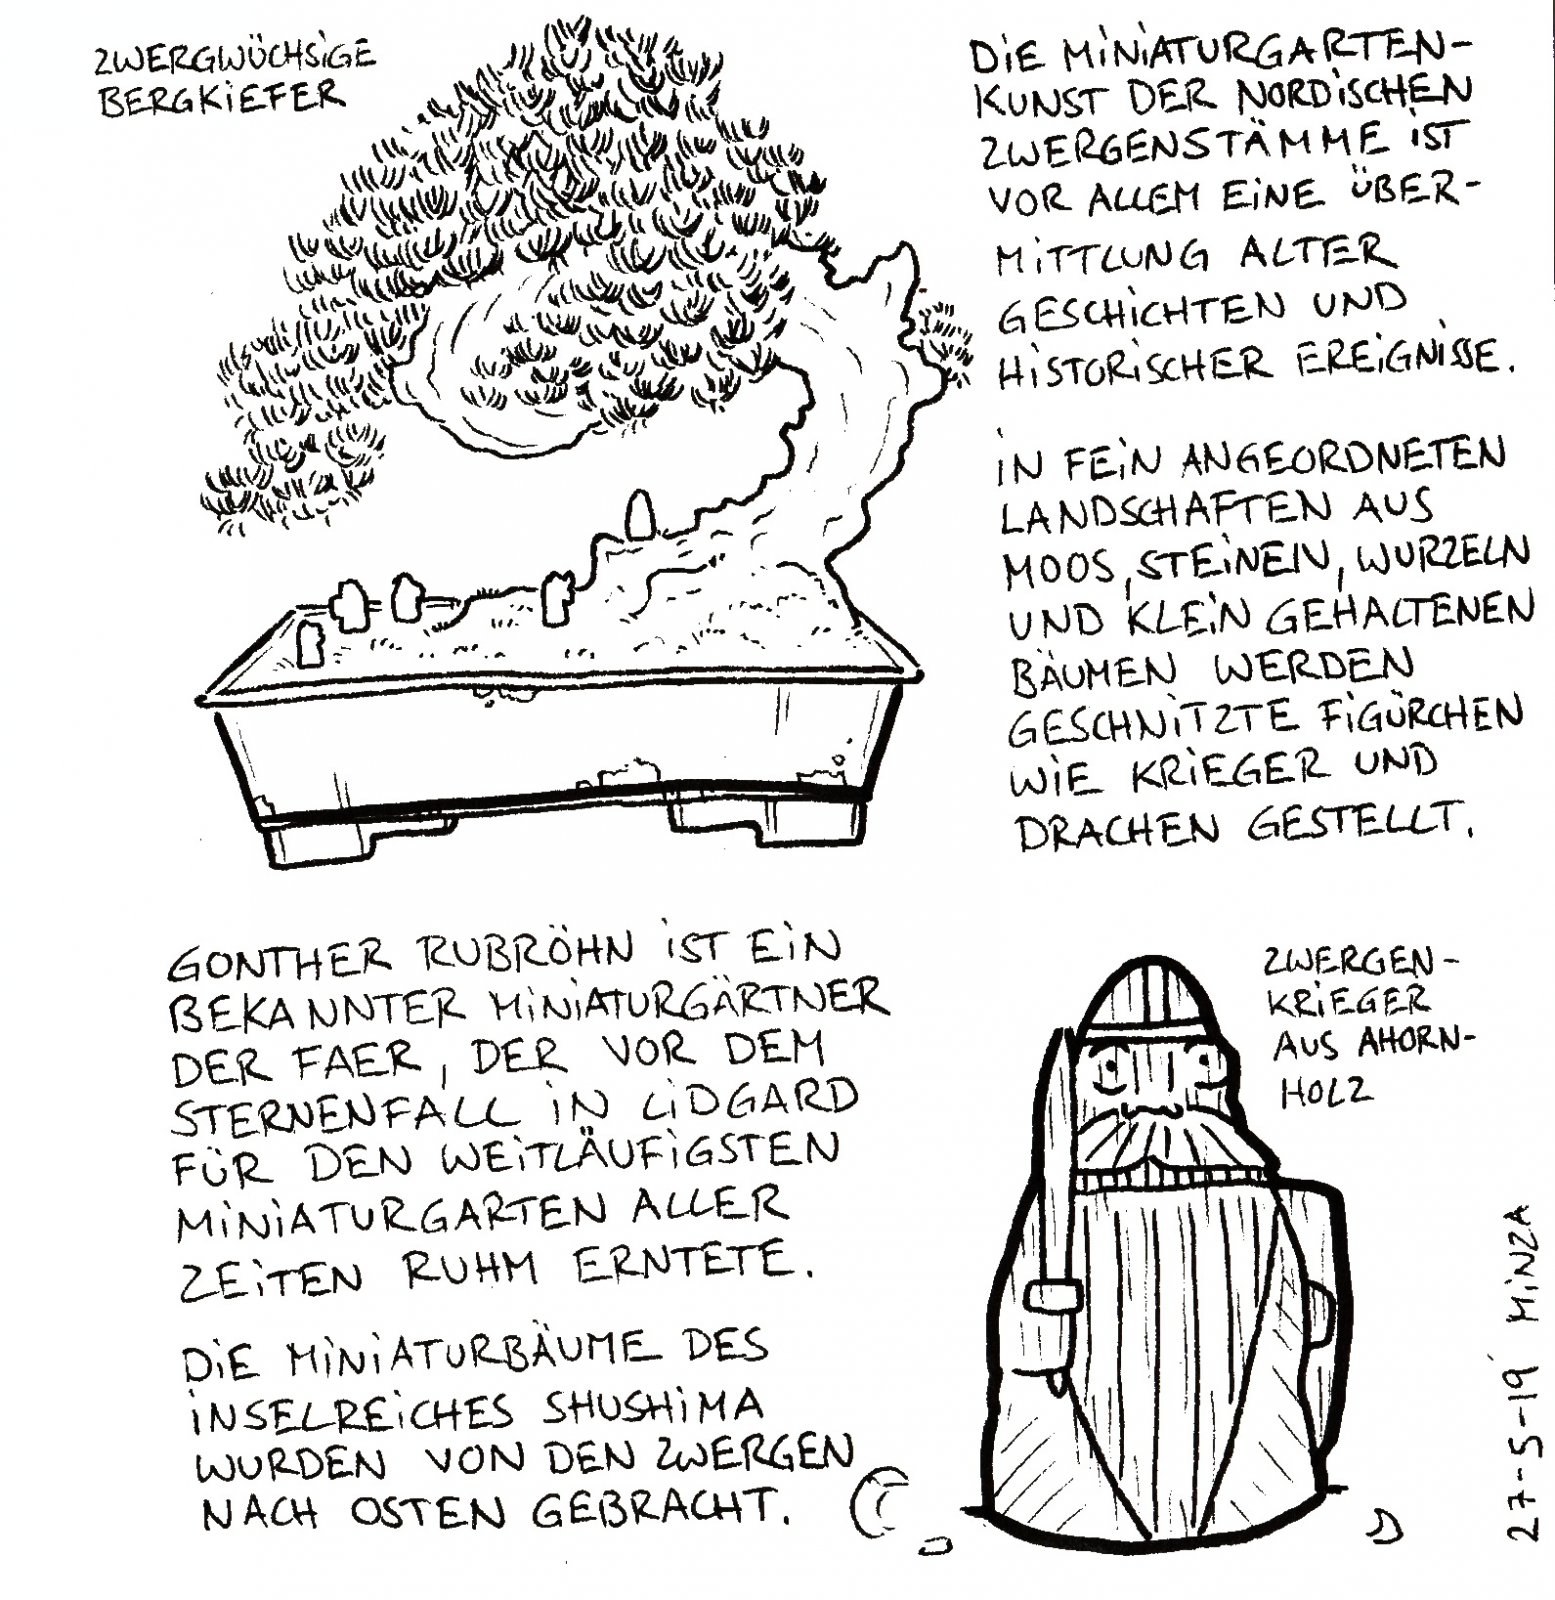 ZWERGWÜCHSiGE
BERGKiEFER
DiE MiNiATURGARTEN-
KUNST DER NORDiSCHEN
ZWERGENSTÄMME iST
VOR ALLEM EiNE ÜBER-
MiTTLUNG ALTER
GESCHiCHTEN UND
HiSTORiSCHER EREiGNiSSE.
iN FEiN ANGEORDNETEN
LANDSCHAFTEN AUS
MOOS, STEiNEN, WURZELN
UND KLEiN GEHALTENEN
BÄUMEN WERDEN
GESCHNiTZTE FiGÜRCHEN
WiE KRiEGER UND
DRACHEN GESTELLT.
GONTHER RUBRÖHN iST EiN
BEKANNTER MiNiATURGÄRTNER
DER FAER, DER VOR DEM
STERNENFALL iN LiDGARD
FÜR DEN WEiTLÄUFiGSTEN
MiNiATURGARTEN ALLER
ZEiTEN RUHM ERNTETE.
DiE MiNiATURBÄUME DES
iNSELREiCHES SHUSHiMA
WURDEN VON DEN ZWERGEN
NACH OSTEN GEBRACHT.
ZWERGEN-
KRiEGER
AUS AHORN-
HOLZ
27-5-19 MiNZA